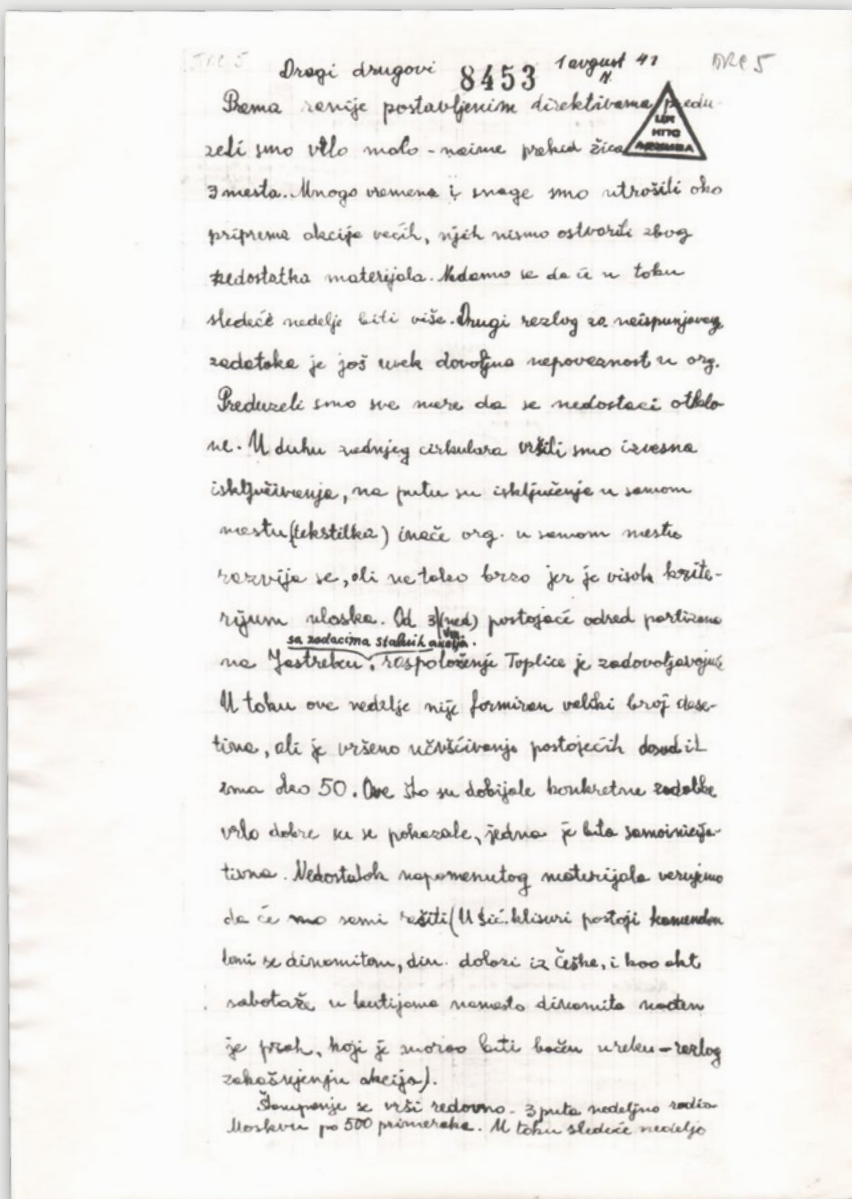 Dragi drugovi 8453 1 avgust 41
N.
DRC 5
Prema ranije postavljenim direktivama predu-
zeli smo vrlo malo - naime prekid žica
3 mesta. Mnogo vremena i snage smo utrošili oko
priprema akcija većih, njih nismo ostvorili zbog
nedostatka materijala. Nadamo se da će u toku
sledeće nedelje biti više. Drugi razlog za neispunjavanj
zadataka je još uvek dovoljna nepoveznost u org.
Preduzeli smo sve mere da se nedostaci otklo-
ne. U duhu zadnjeg cirkulara vršili smo izvesna
isključivanja, na putu su isključenja u samom
mestu (tekstilka) inače org. u samom mestu
razvija se, ali ne tako brzo jer je visok krite-
rijum ulaska. Od 3/ (ned) postojaće odred partizana
sa zadacima stalnih akcija.
na Jastrebcu, raspoloženje Toplice je zadovoljavajuće
U toku ove nedelje nije formiran veliki broj dese-
tina, ali je vršeno učvšćivanje postojećih dosad ih
ima oko 50. Ove što su dobijale konkretne zadatke
vrlo dobre su se pokazale, jedna je bila samoinicija-
tivna. Nedostatak napomenutog materijala verujemo
da će mo sami rešiti (U Sić. klisuri postoji
se dinamitom, din. dolazi iz Češke, i kao akt
sabotaže u kutijama namesto dinamita nađen
je prah, koji je morao biti bačen u reku - razlog
zakašnjenju akcija).
Štampanje se vrši redovno - 3 puta nedeljno radio
Moskvu po 500 primeraka. U toku sledeće nedelje